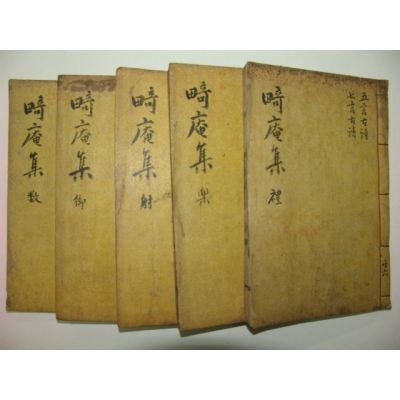 五言古詩
七言古詩
畸庵集 禮
共六
畸庵集 樂
畸庵集 射
畸庵集 御
畸庵集 數